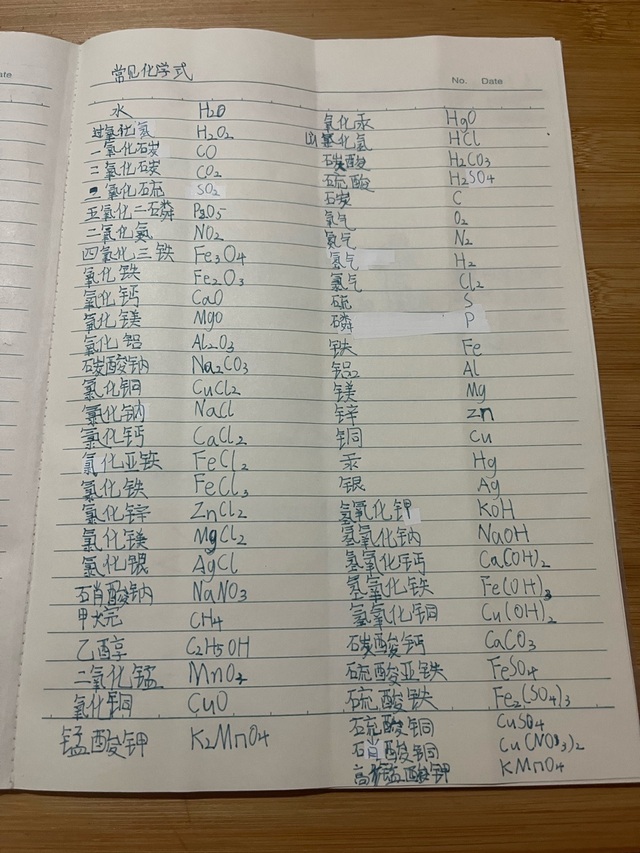 ate
常见化学式
No. Date
水 H₂O
过氧化氢 H₂O₂
一氧化碳 CO
二氧化碳 CO₂
二氧化硫 SO₂
五氧化二磷 P₂O₅
二氧化氮 NO₂
四氧化三铁 Fe₃O₄
氧化铁 Fe₂O₃
氧化钙 CaO
氧化镁 MgO
氧化铝 Al₂O₃
碳酸钠 Na₂CO₃
氯化铜 CuCl₂
氯化钠 NaCl
氯化钙 CaCl₂
氯化亚铁 FeCl₂
氯化铁 FeCl₃
氯化锌 ZnCl₂
氯化镁 MgCl₂
氯化银 AgCl
硝酸钠 NaNO₃
甲烷 CH₄
乙醇 C₂H₅OH
二氧化锰 MnO₂
氧化铜 CuO
锰酸钾 K₂MnO₄
氧化汞 HgO
氯化氢 HCl
碳酸 H₂CO₃
硫酸 H₂SO₄
碳 C
氧气 O₂
氮气 N₂
氢气 H₂
氯气 Cl₂
硫 S
磷 P
铁 Fe
铝 Al
镁 Mg
锌 Zn
铜 Cu
汞 Hg
银 Ag
氢氧化钾 KOH
氢氧化钠 NaOH
氢氧化钙 Ca(OH)₂
氢氧化铁 Fe(OH)₃
氢氧化铜 Cu(OH)₂
碳酸钙 CaCO₃
硫酸亚铁 FeSO₄
硫酸铁 Fe₂(SO₄)₃
硫酸铜 CuSO₄
硝酸铜 Cu(NO₃)₂
高锰酸钾 KMnO₄